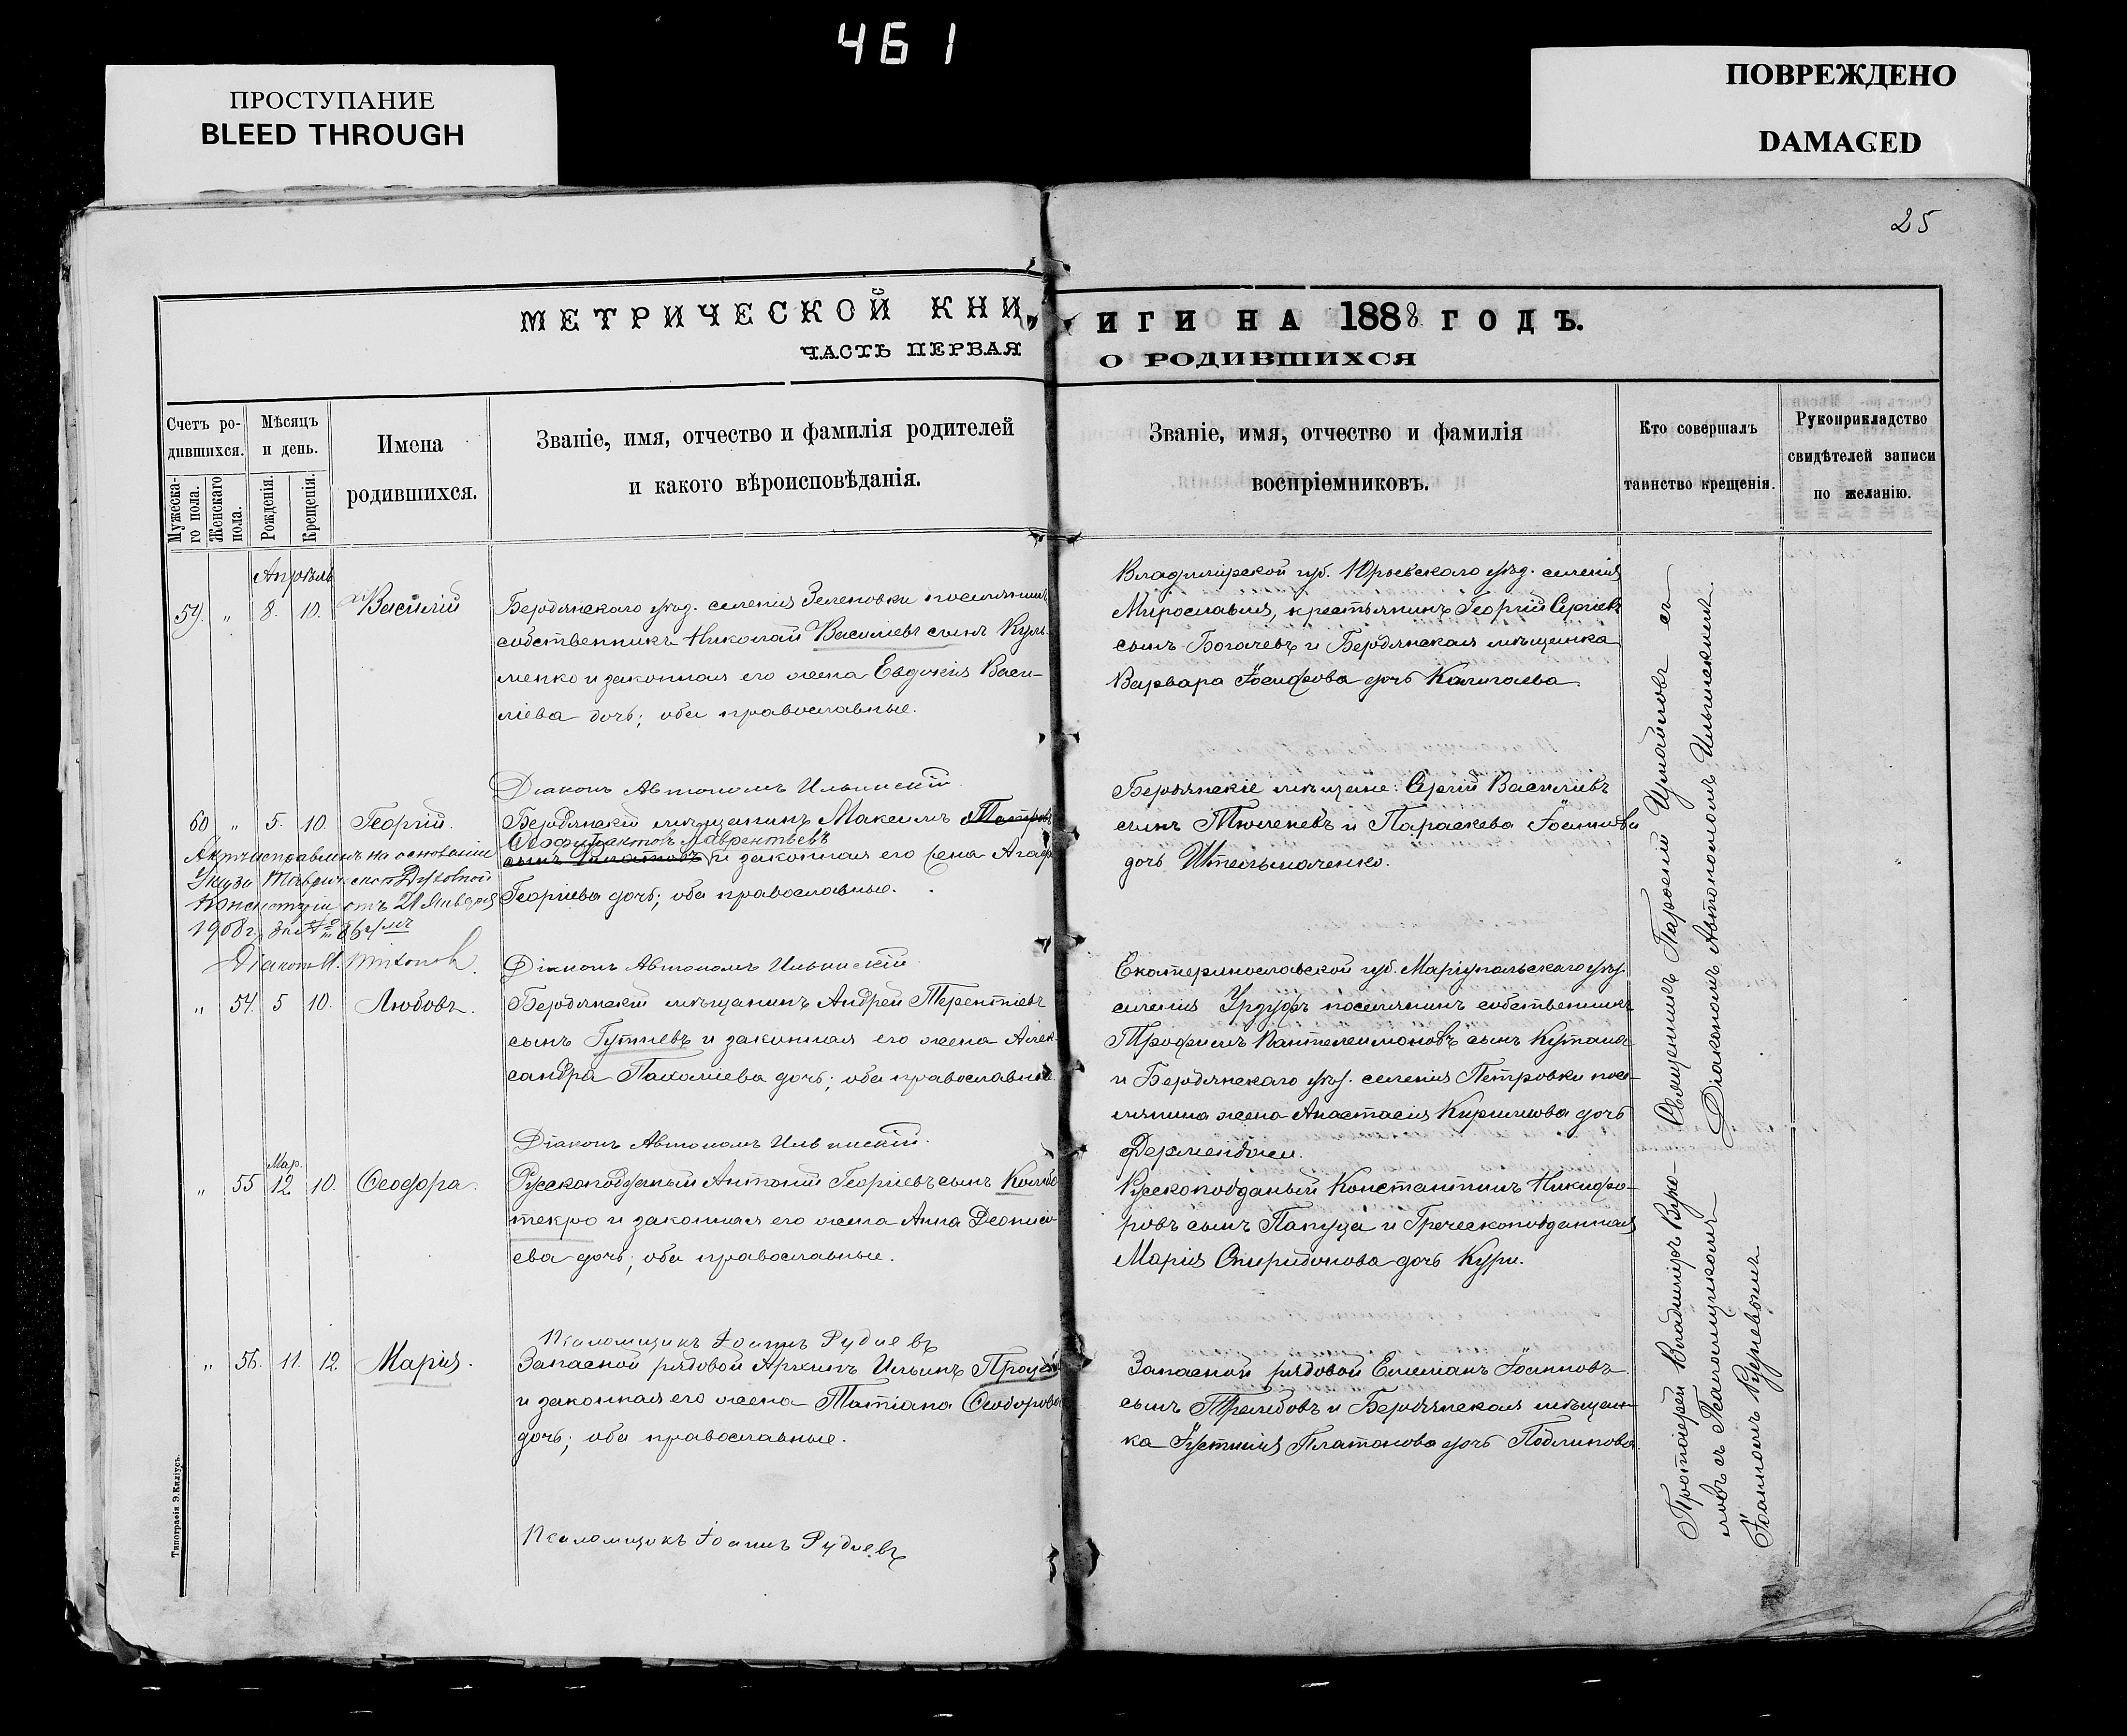 461
ПРОСТУПАНИЕ
BLEED THROUGH
ПОВРЕЖДЕНО
DAMAGED
25
МЕТРИЧЕСКОЙ КНИ
ИГИ НА 1888 ГОДЪ.
ЧАСТЬ ПЕРВАЯ
О РОДИВШИХСЯ
Счетъ ро-
дившихся.
Мужеска-
го пола.
Женскаго
пола.
Мѣсяцъ
и день.
Рожденія.
Крещенія.
Имена
родившихся.
Званіе, имя, отчество и фамилія родителей
и какого вѣроисповѣданія.
Званіе, имя, отчество и фамилія
воспріемниковъ.
Кто совершалъ
таинство крещенія.
Рукоприкладство
свидѣтелей записи
по желанію.
Апрѣль
59. " 8. 10. Василій
Бердянскаго уѣзд. селенія Зеленовки поселянинъ
собственникъ Николай Василіевъ сынъ Кули-
менко и законная его жена Евдокія Васи-
ліева дочь; оба православные.
Владимірской губ. Юрьевскаго уѣзд. селенія
Мирославля, крестьянинъ Георгій Сергіевъ
сынъ Богачевъ и Бердянская мѣщанка
Варвара Іосифова дочь Калигаева.
Діаконъ Автономъ Ильинскій.
60 " 5. 10. Георгій.
Бердянскій мѣщанинъ Максимъ Петровъ
Феофилактовъ Лаврентьевъ
сынъ и законная его жена Агаф
Георгіева дочь; оба православные.
Актъ исправленъ на основаніи
Указа Таврической Духовной
Консисторіи отъ 21 Января
1908 г. за №
Діаконъ И. Титовъ.
Бердянскіе мѣщане: Сергій Василіевъ
сынъ Тюленевъ и Параскева Іоаннова
дочь
Діаконъ Автономъ Ильинскій
" 54. 5 10. Любовь.
Бердянскій мѣщанинъ Андрей Терентіевъ
сынъ Гутневъ и законная его жена Алек-
сандра Пахоміева дочь; оба православные.
Екатеринославской губ. Маріупольскаго уѣз.
селенія Урзуфъ поселянинъ собственникъ
Трофимъ Пантелеимоновъ сынъ Кутана
и Бердянскаго уѣз. селенія Петровки посе-
лянина жена Анастасія Кириллова дочь
Дерменджи.
Діаконъ Автономъ Ильинскій.
Мар.
" 55 12. 10. Ѳеодора.
Русскоподданый Антоній Георгіевъ сынъ Коллбо
текро и законная его жена Анна Деониси-
ева дочь; оба православные.
Русскоподданый Константинъ Никифо-
ровъ сынъ Папуца и Греческоподданная
Марія Спиридонова дочь Кури.
Псаломщикъ Іоаннъ Рудневъ
" 56. 11. 12. Марія.
Запасной рядовой Архипъ Ильинъ
и законная его жена Татіана Ѳеодорова
дочь; оба православные.
Запасной рядовой Емеліанъ Іоанновъ
сынъ Трембовъ и Бердянская мѣщан-
ка Іустинія Платонова дочь Подлинова.
Псаломщикъ Іоаннъ Рудневъ
Священникъ Парѳеній Измайловъ съ
Діакономъ Автономомъ Ильинскимъ.
Протоіерей Владиміръ Вуко-
ловъ съ Псаломщикомъ
Іоанномъ Рудневымъ.
Типографія Э. Киліусъ.